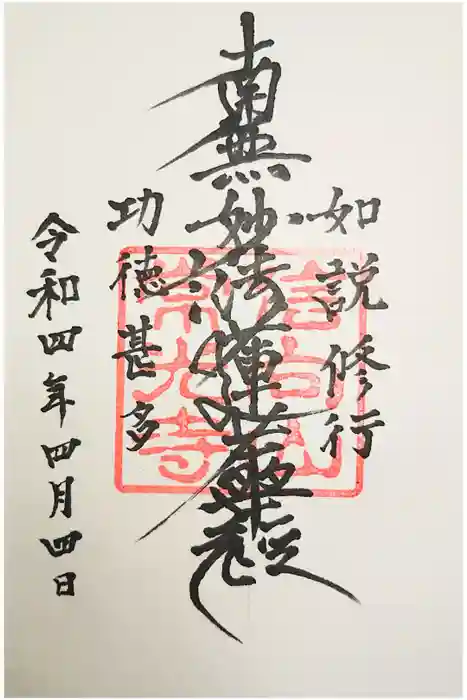 如説修行
南無妙法蓮華経
功徳甚多
令和四年四月四日
常光寺